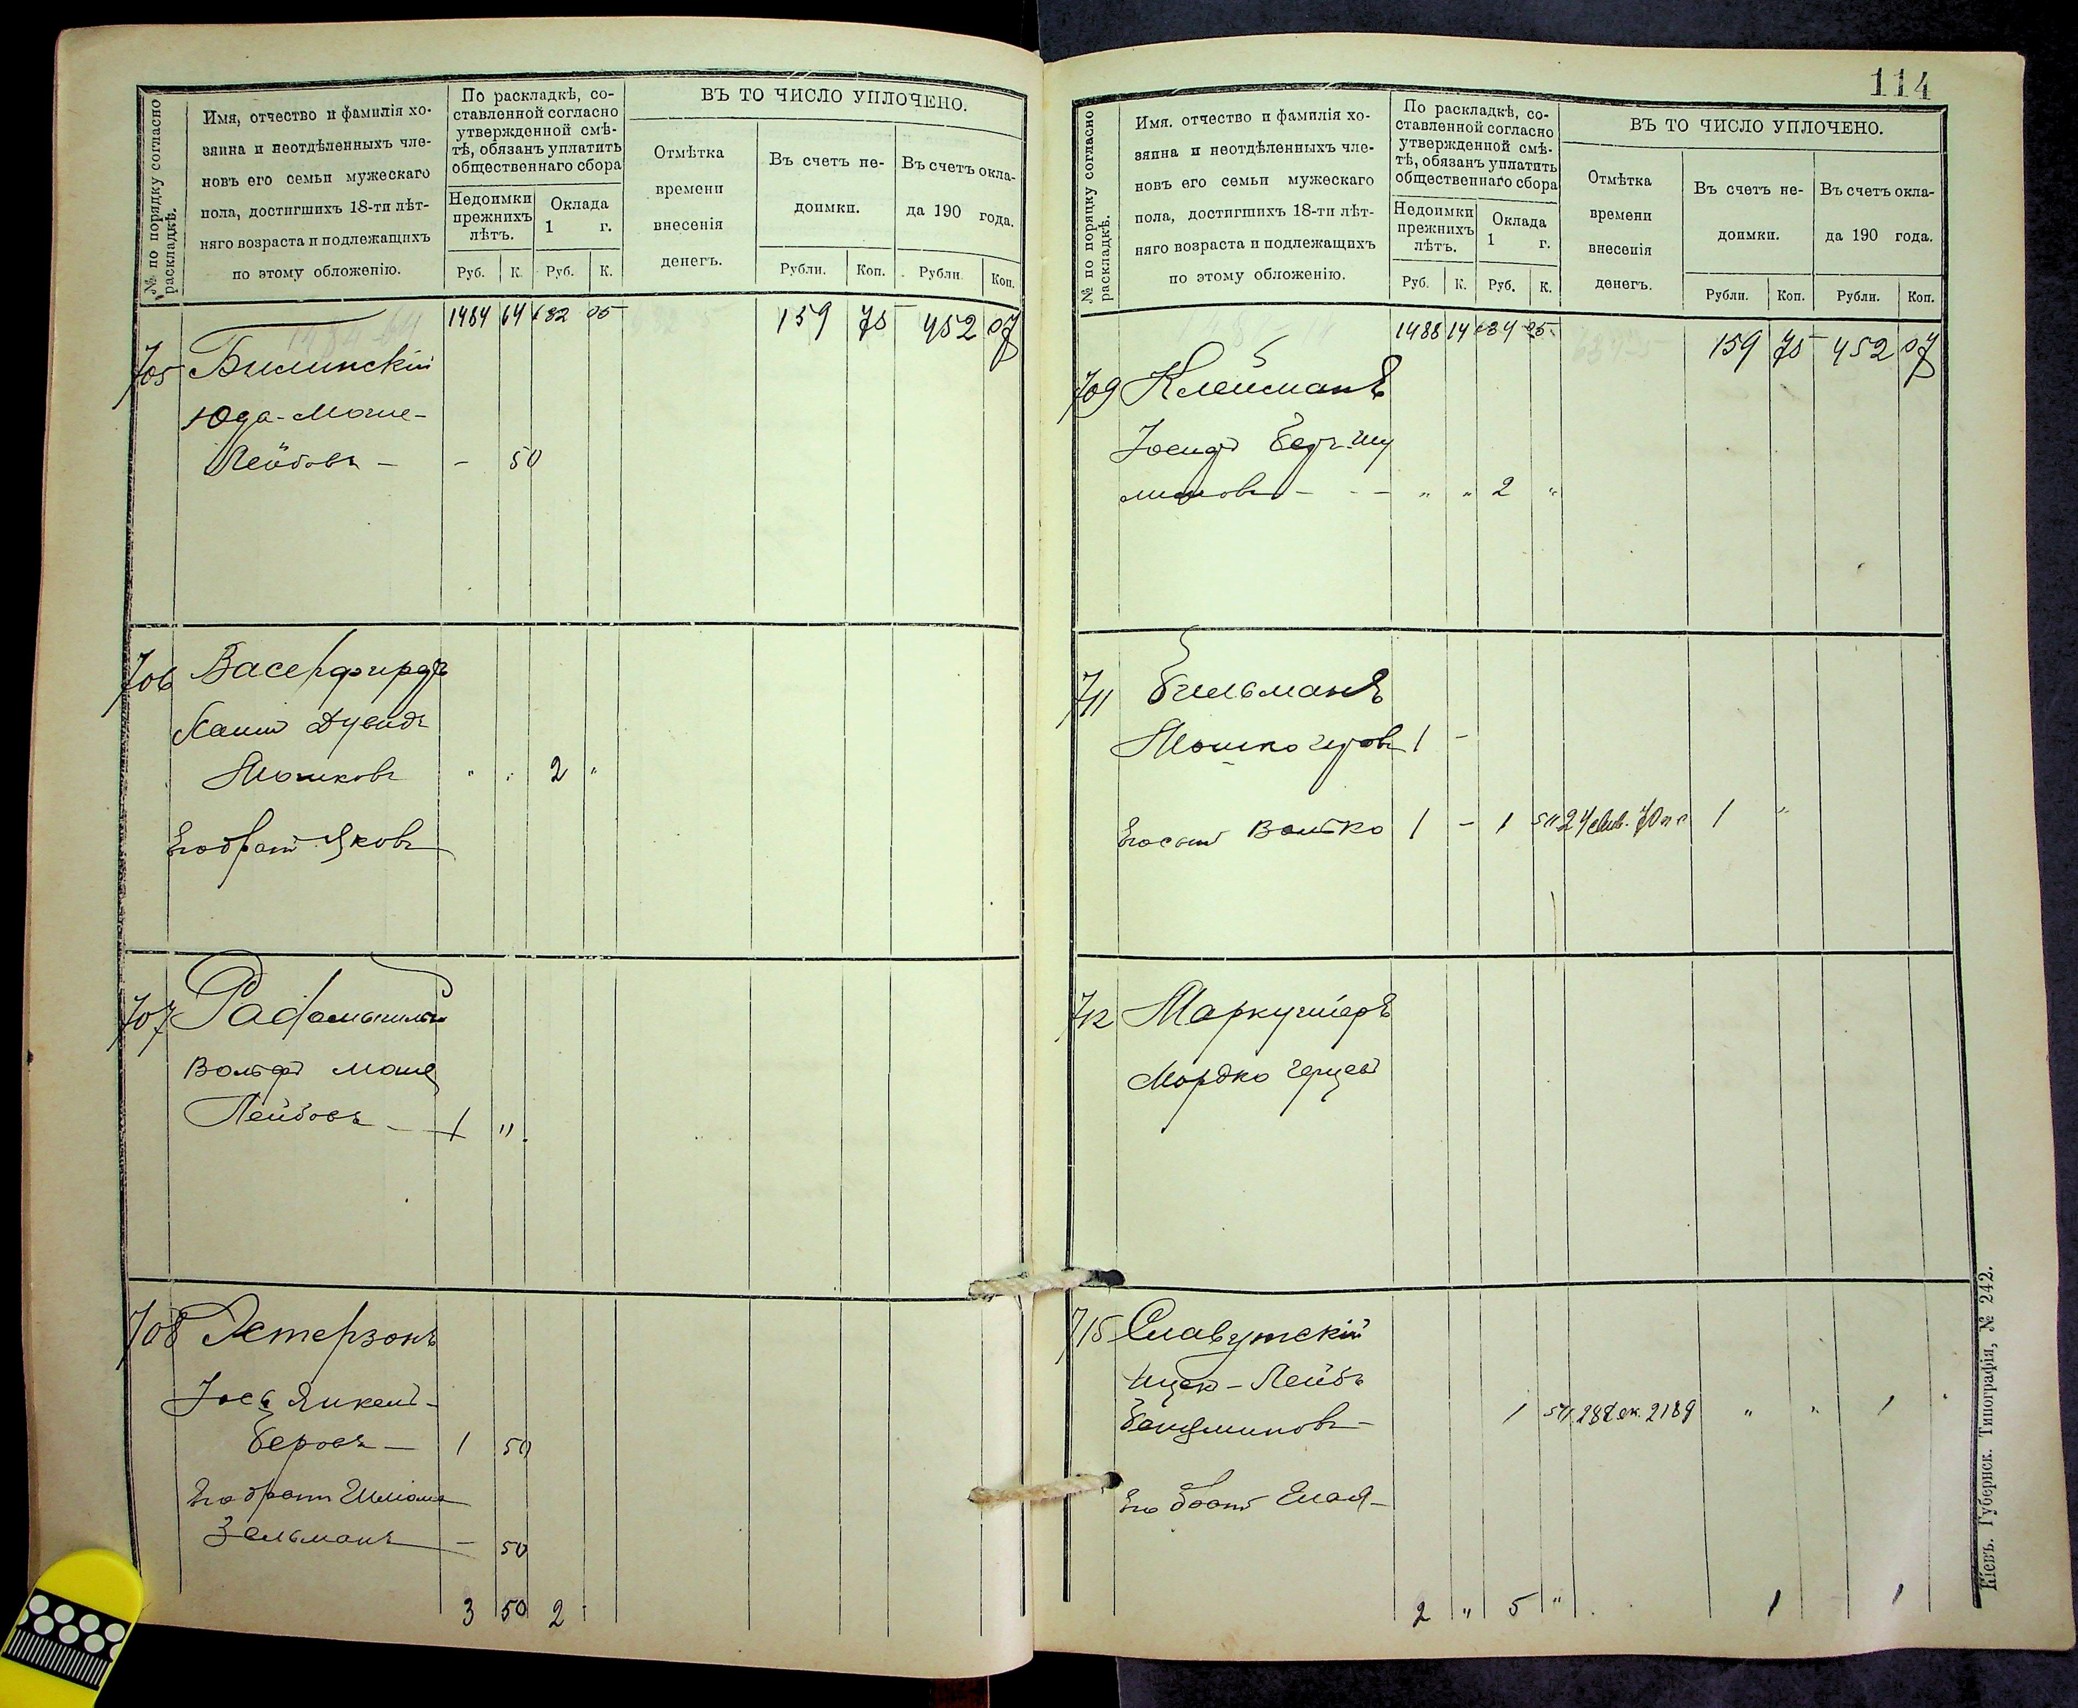 № по порядку согласно раскладкѣ.
Имя, отчество и фамилія хо-
зяина и неотдѣленныхъ чле-
новъ его семьи мужескаго
пола, достигшихъ 18-ти лѣт-
няго возраста и подлежащихъ
по этому обложенію.
По раскладкѣ, со-
ставленной согласно
утвержденной смѣ-
тѣ, обязанъ уплатить
общественнаго сбора
Недоимки
прежнихъ
лѣтъ.
Оклада
1 г.
Руб. К. Руб. К.
ВЪ ТО ЧИСЛО УПЛОЧЕНО.
Отмѣтка
времени
внесенія
денегъ.
Въ счетъ не-
доимки.
Въ счетъ окла-
да 190 года.
Рубли. Коп. Рубли. Коп.
1484 64 632 05 159 75 452 07
705 Билинскій
Юда-Моше-
Лейбовъ - - 50
706 Васерфирдъ
Хаим Дувидъ
Мошковъ " " 2 "
Его брат Яковъ
707
Вольфъ Моше
Лейбовъ - 1 "
708 Эстерзонъ
Іось Янкель-
Беровъ - 1 50
Его братъ Шліома
Зельманъ - 50
3 50 2
114
№ по порядку согласно раскладкѣ.
Имя, отчество и фамилія хо-
зяина и неотдѣленныхъ чле-
новъ его семьи мужескаго
пола, достигшихъ 18-ти лѣт-
няго возраста и подлежащихъ
по этому обложенію.
По раскладкѣ, со-
ставленной согласно
утвержденной смѣ-
тѣ, обязанъ уплатить
общественнаго сбора
Недоимки
прежнихъ
лѣтъ.
Оклада
1 г.
Руб. К. Руб. К.
ВЪ ТО ЧИСЛО УПЛОЧЕНО.
Отмѣтка
времени
внесенія
денегъ.
Въ счетъ не-
доимки.
Въ счетъ окла-
да 190 года.
Рубли. Коп. Рубли. Коп.
1488 14 634 05 159 75 452 07
709 Клейманъ
Іосифъ Беръ-Шу
лимовъ - - - " " 2 "
711 Бильманъ
Мошко 1 -
Его сынъ 1 - 1 50 24 1 "
712 Маркушперъ
Мордко Герцевъ
715 Славутскій
Ицко-Лейбъ
Беньяминовъ- 1 50 28 Дек. 2189 " " 1
Его братъ Елья-
2 " 5 " 1 1
Кіевъ. Губернск. Типографія, № 242.